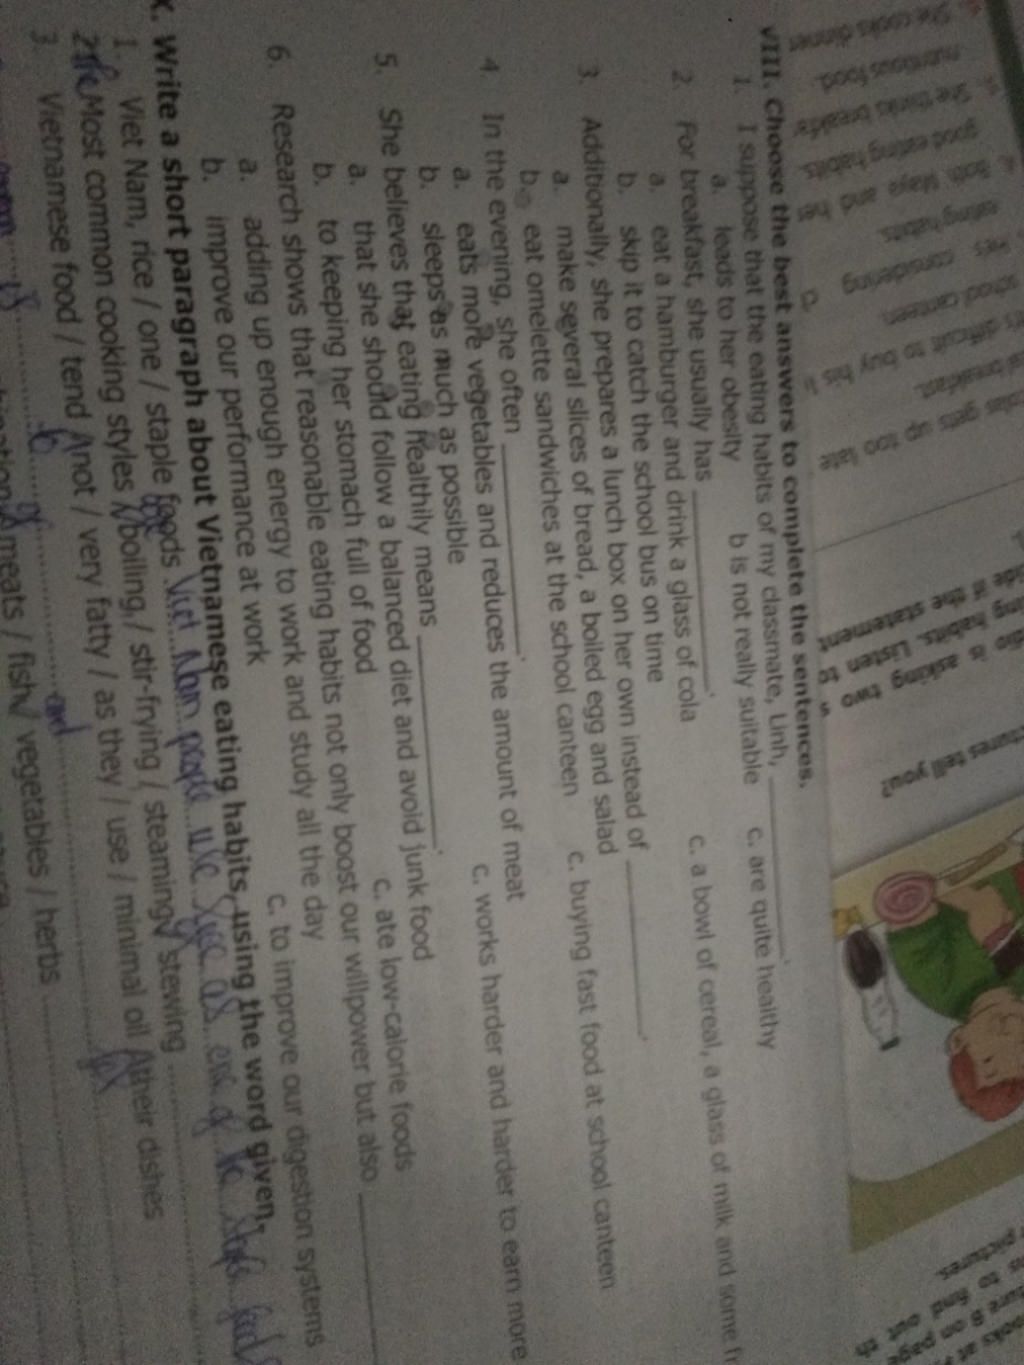 VIII. Choose the best answers to complete the sentences.
1. I suppose that the eating habits of my classmate, Linh, ________.
a. leads to her obesity b is not really suitable c. are quite healthy
2. For breakfast, she usually has ________.
a. eat a hamburger and drink a glass of cola c. a bowl of cereal, a glass of milk and some
b. skip it to catch the school bus on time
3. Additionally, she prepares a lunch box on her own instead of ________.
a. make several slices of bread, a boiled egg and salad
b. eat omelette sandwiches at the school canteen c. buying fast food at school canteen
4 In the evening, she often ________.
a. eats more vegetables and reduces the amount of meat
b. sleeps as much as possible c. works harder and harder to earn more
5. She believes that eating healthily means ________.
a. that she should follow a balanced diet and avoid junk food
b. to keeping her stomach full of food c. ate low-calorie foods
6. Research shows that reasonable eating habits not only boost our willpower but also ________
a. adding up enough energy to work and study all the day
b. improve our performance at work c. to improve our digestion systems
X. Write a short paragraph about Vietnamese eating habits, using the word given.
1. Viet Nam, rice / one / staple foods Viet Nam people use rice as one of the staple foods
2 Most common cooking styles / boiling / stir-frying / steaming / stewing
3. Vietnamese food / tend / not / very fatty / as they / use / minimal oil / their dishes
meats / fish / vegetables / herbs
She cooks dinner
nutritious food.
She thinks
good eating habits.
Both Maya and her
eating habits.
considering
school canteen.
difficult to buy his
breakfast.
gets up too late
is asking two
habits. Listen
if the statement
tell you?
pictures.